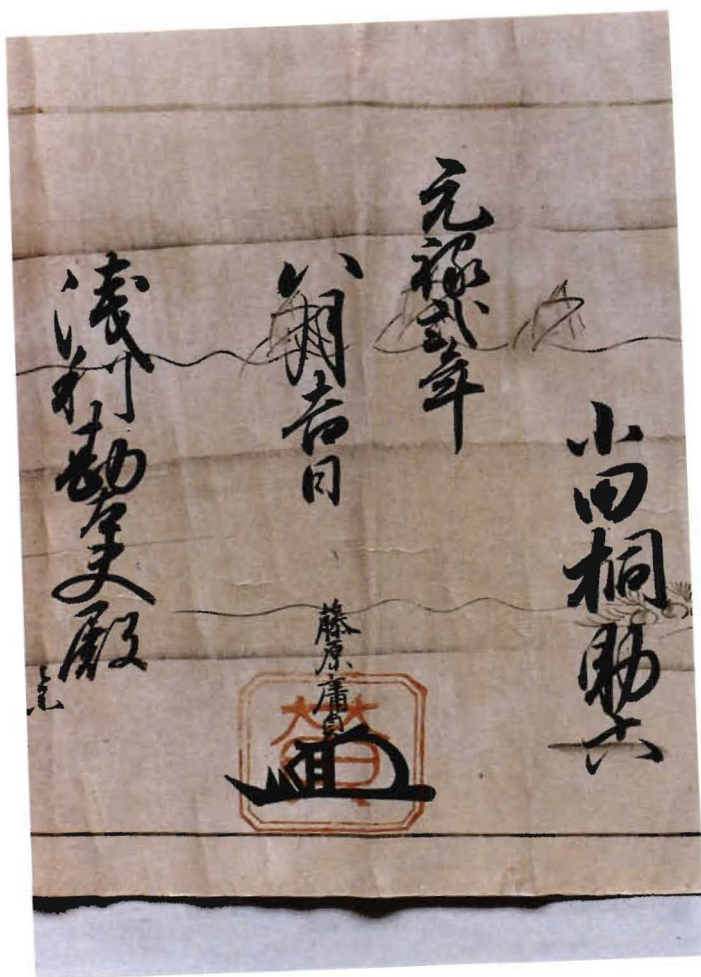 小田桐助六
元禄弐年
八月吉日
藤原庸貞
浅利勘太夫殿